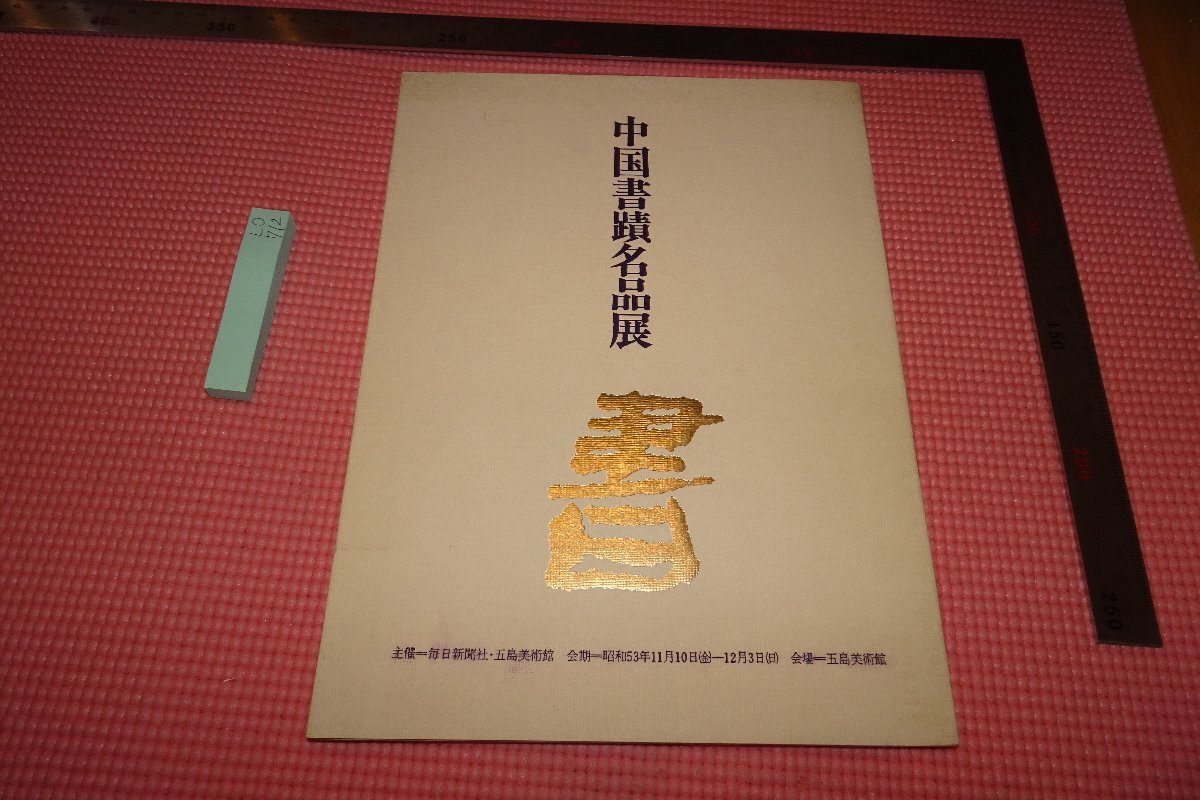 400 350 300 250 200 150 100
中国書蹟名品展
書
主催=毎日新聞社・五島美術館 会期=昭和53年11月10日(金)―12月3日(日) 会場=五島美術館
100
150
200
250